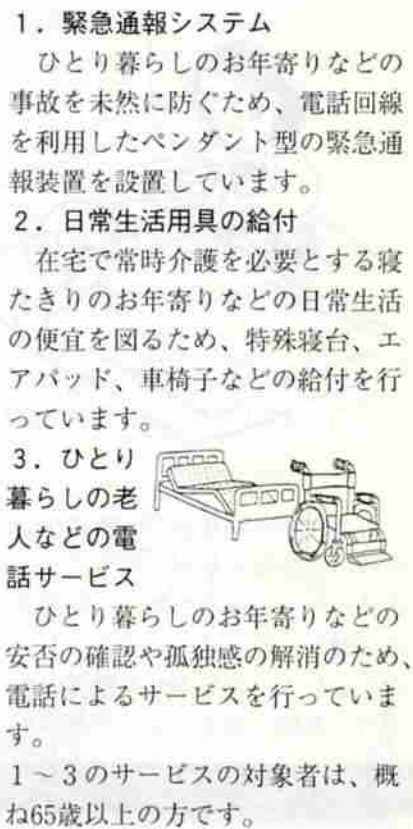 1．緊急通報システム
　ひとり暮らしのお年寄りなどの
事故を未然に防ぐため、電話回線
を利用したペンダント型の緊急通
報装置を設置しています。
2．日常生活用具の給付
　在宅で常時介護を必要とする寝
たきりのお年寄りなどの日常生活
の便宜を図るため、特殊寝台、エ
アパッド、車椅子などの給付を行
っています。
3．ひとり
暮らしの老
人などの電
話サービス
　ひとり暮らしのお年寄りなどの
安否の確認や孤独感の解消のため、
電話によるサービスを行っていま
す。
1～3のサービスの対象者は、概
ね65歳以上の方です。